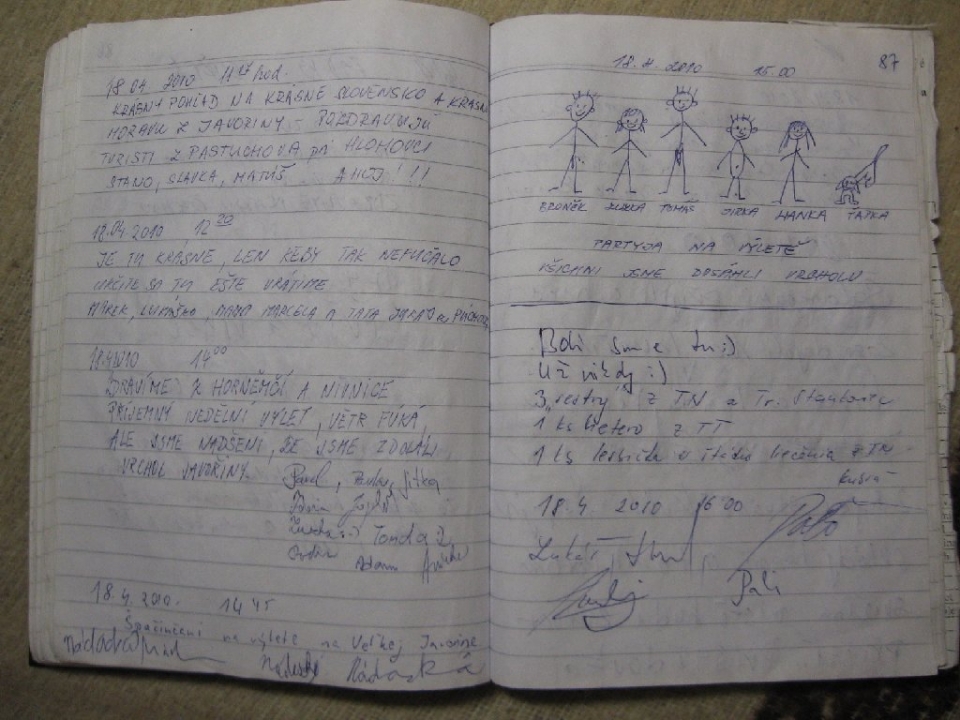 18.04 2010 11 hod.
KRÁSNY POHĽAD NA KRÁSNE SLOVENSKO A KRÁSNU
MORAVU Z JAVORINY - POZDRAVUJÚ
TURISTI Z PASTUCHOVA pri HLOHOVCI
STANO, SLÁVKA, MATÚŠ AHOJ!!!
18.04 2010, 12 20
JE TU KRÁSNE, LEN KEBY TAK NEFÚČALO
URČITE SA TU EŠTE VRÁTIME
MAREK, LUKÁŠKO, MAMA MARCELA A TATA
18.4.2010 14 00
ZDRAVÍME Z HORNĚMČÍ A NIVNICE
PŘÍJEMNÝ NEDĚLNÍ VÝLET, VĚTR FÚKÁ,
ALE JSME NADŠENI, ŽE JSME ZDOLALI
VRCHOL JAVOŘINY.
Pavel, Jitka
Tonda
Adam
18.4.2010. 14 45
Špačinčani na výlete na Veľkej Javorine
87
18.4 2010 15.00
ZDENĚK TOMÁŠ JIRKA HANKA TAJKA
PARTYJA NA VÝLETĚ
VŠICHNI JSME DOSÁHLI VRCHOLU
Boli sme tu :)
Už nikdy :)
3 sestry z TN a Tr. Stankovce
1 ks hetero z TT
1 ks z TN
18.4. 2010 16:00
Lukáš,
Pali